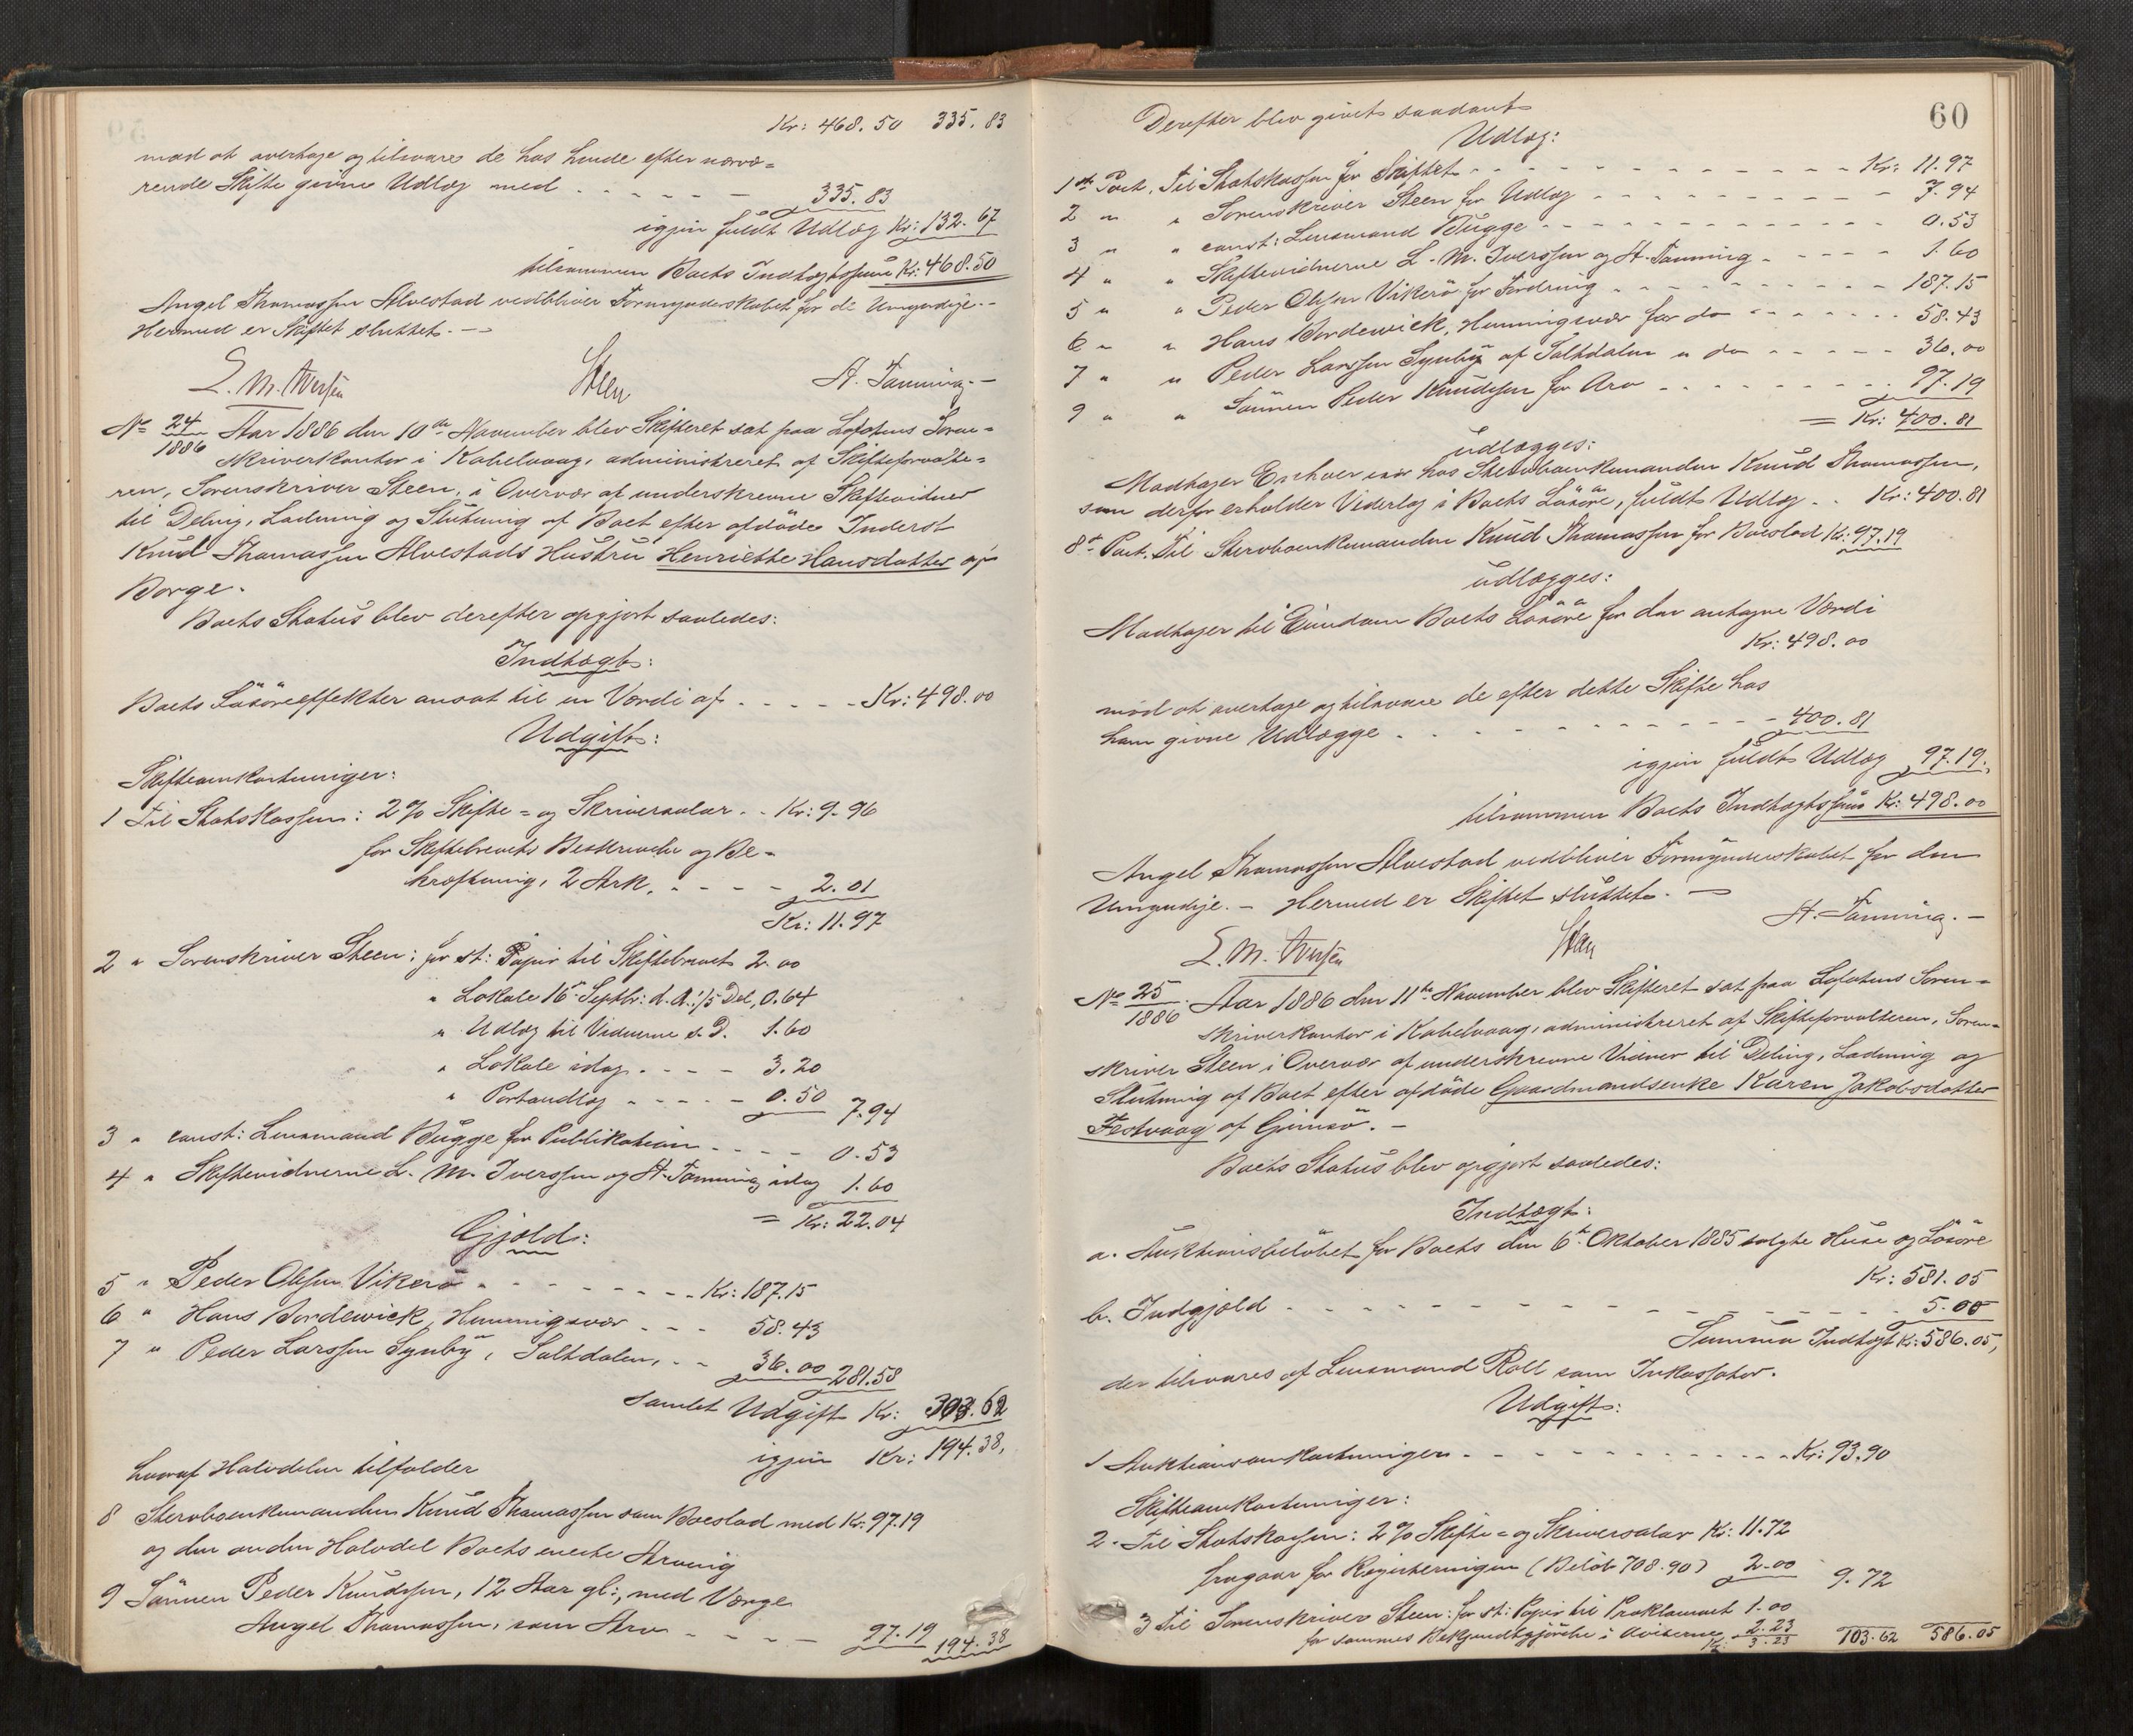 Kr: 468.50 335.83
mod at overtage og tilsvare de hos hende efter nærvæ=
rende Skifte givne Udlæg med - - - - - 335.83
igjen fuldt Udlæg Kr: 132.67
tilsammen Boets Indtægtssum Kr: 468.50
Angel Thomassen Alvestad vedbliver Formynderskabet for de Umyndige. -
Hermed er Skiftet sluttet. -
L. M. Iversen Steen A. Tanning. -
No 24/1886 Aar 1886 den 10de November blev Skifteret sat paa Lofotens Soren=
skriverkontor i Kabelvaag, administreret af Skifteforvalte=
ren, Sorenskriver Steen, i Overvær af underskrevne Skiftevidner
til Deling, Lodning og Slutning af Boet efter afdøde Inderst
Knud Thomassen Alvestads Hustru Henriette Hansdatter af
Borge.
Boets Status blev derefter opgjort saaledes:
Indtægt:
Boets Løsøreeffekter ansat til en Værdi af - - - - - Kr: 498.00
Udgift:
Skifteomkostninger:
1 Til Statskassen: 2% Skifte= og Skriversalær - - Kr: 9.96
for Skiftebrevets Beskrivelse og Be=
kræftning, 2 Ark. - - - - 2.01
Kr: 11.97
2 " Sorenskriver Steen: for st: Papir til Skiftebrevet 2.00
" Lokale 16de Septbr: d. A. 1/5 Del, 0.64
" Udlæg til Vidnerne s. D. 1.60
" Lokale idag - - - - 3.20
" Portoudlæg - - - - - 0.50 7.94
3 " const: Lensmand Bugge for Publikation - - - - 0.53
4 " Skiftevidnerne L. M. Iverssen og A. Tanning idag 1.60
= Kr: 22.04
Gjæld:
5 " Peder Olsen Vikerø - - - - - - Kr: 187.15
6 " Hans Bordewick, Henningsvær - - - 58.43
7 " Peder Larssen Synby, Saltdalen, - - 36.00 281.58
Samlet Udgift Kr: 303.62
igjen Kr: 194.38,
hvoraf Halvdelen tilfalder
8 Stervboenkemanden Knud Thomassen som Boeslod med Kr: 97.19
og den anden Halvdel Boets eneste Arving
9 Sønnen Peder Knudssen, 12 Aar gl:, med Værge
Angel Thomassen, som Arv - - - - 97.19 194.38
60
Derefter blev givet saadant
Udlæg:
1ste Post. Til Statskassen for Skiftet - - - - - - - - - Kr: 11.97
2 " " Sorenskriver Steen for Udlæg - - - - - - - - - 7.94
3 " " const: Lensmand Bugge - - - - - - - - - - - 0.53
4 " " Skiftevidnerne L. M. Iverssen og A. Tanning - - - - - 1.60
5 " " Peder Olsen Vikerø for Fordring - - - - - - - - - 187.15
6 " " Hans Bordewick, Henningsvær for do - - - - - - - 58.43
7 " " Peder Larssen Synby af Saltdalen " do - - - - - 36.00
9 " " Sønnen Peder Knudssen for Arv - - - - - - - - - 97.19
= Kr: 400.81
udlægges:
Modtager Enhver især hos Stervboenkemanden Knud Thomassen,
som derfor erholder Vederlag i Boets Løsøre, fuldt Udlæg - - Kr: 400.81
8de Post. Til Stervboenkemanden Knud Thomassen for Boeslod Kr: 97.19
udlægges:
Modtager til Eiendom Boets Løsøre for den antagne Værdi
Kr: 498.00
mod at overtage og tilsvare de efter dette Skifte hos
ham givne Udlægge - - - - - - - - - - - 400.81
igjen fuldt Udlæg 97.19.
tilsammen Boets Indtægtssum Kr: 498.00
Angel Thomassen Alvestad vedbliver Formynderskabet for den
Umyndige. - Hermed er Skiftet sluttet. -
L. M. Iversen Steen A. Tanning. -
No 25/1886. Aar 1886 den 11te November blev Skifteret sat paa Lofotens Soren=
skriverkontor i Kabelvaag, administreret af Skifteforvalteren, Soren=
skriver Steen i Overvær af underskrevne Vidner til Deling, Lodning og
Slutning af Boet efter afdøde Gaardmandsenke Karen Jakobsdatter
Festvaag af Gimsø. -
Boets Status blev opgjort saaledes:
Indtægt:
a. Auktionsbeløbet for Boets den 6te Oktober 1885 solgte Huse og Løsøre
Kr: 581.05
b. Indgjæld - - - - - - - - - - - - - - - - - 5.00
Summa Indtægt Kr: 586.05,
der tilsvares af Lensmand Roll som Inkassator.
Udgift:
1 Auktionsomkostninger - - - - - - - - - - - - Kr: 93.90
Skifteomkostninger:
2. Til Statskassen: 2% Skifte= og Skriversalær Kr: 11.72
fragaar for Registreringen (Beløb 708.90) 2.00 9.72
3 Til Sorenskriver Steen: for st: Papir til Proklamaet 1.00
for sammes Bekjendtgjørelse i Aviserne 2.23
Kr: 3.23 103.62 586.05